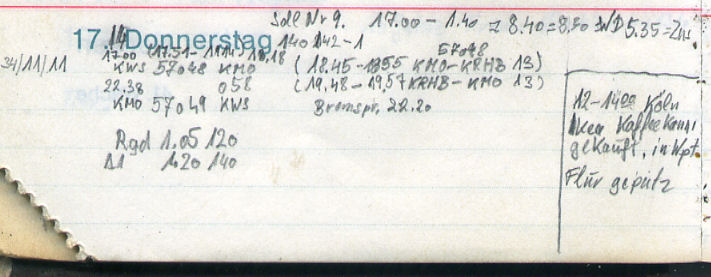 Sdl Nr 9. 17.00 - 1.40 = 8.40 = 8.30 5.35 =
17. Donnerstag
14
140 142-1
17.00 (17.51 - 1914) 18.18
57048
34/11/11
KWS 57048 KMO (18.45 - 1855 KMO-KRHB 13)
22.38 058 (19.48 - 19,57 KRHB-KMO 13)
KMO 57049 KWS Bremspr. 22.20
Rgd 1.05 120
Δ1 1.20 140
12-1400 Köln
Ikea Kaffeekanne
gekauft, in Wpt
Flur geputz